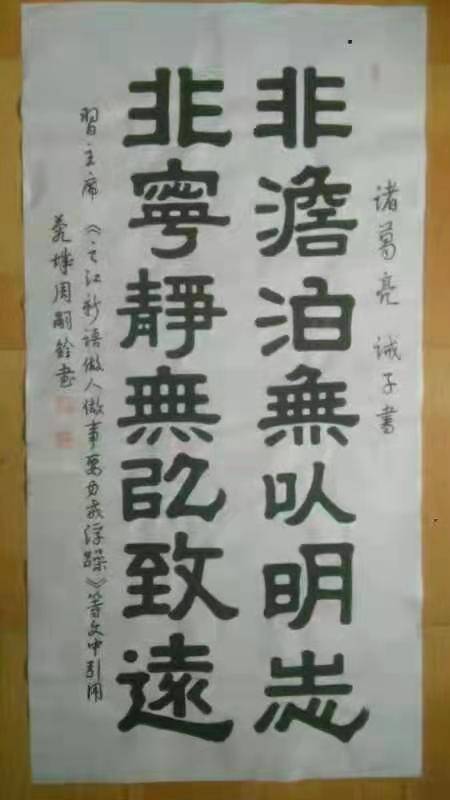 诸葛亮 诫子书
非澹泊無以明志
非寧靜無以致遠
習主席《之江新语做人做事要力戒浮躁》等文中引用
周嗣铨书